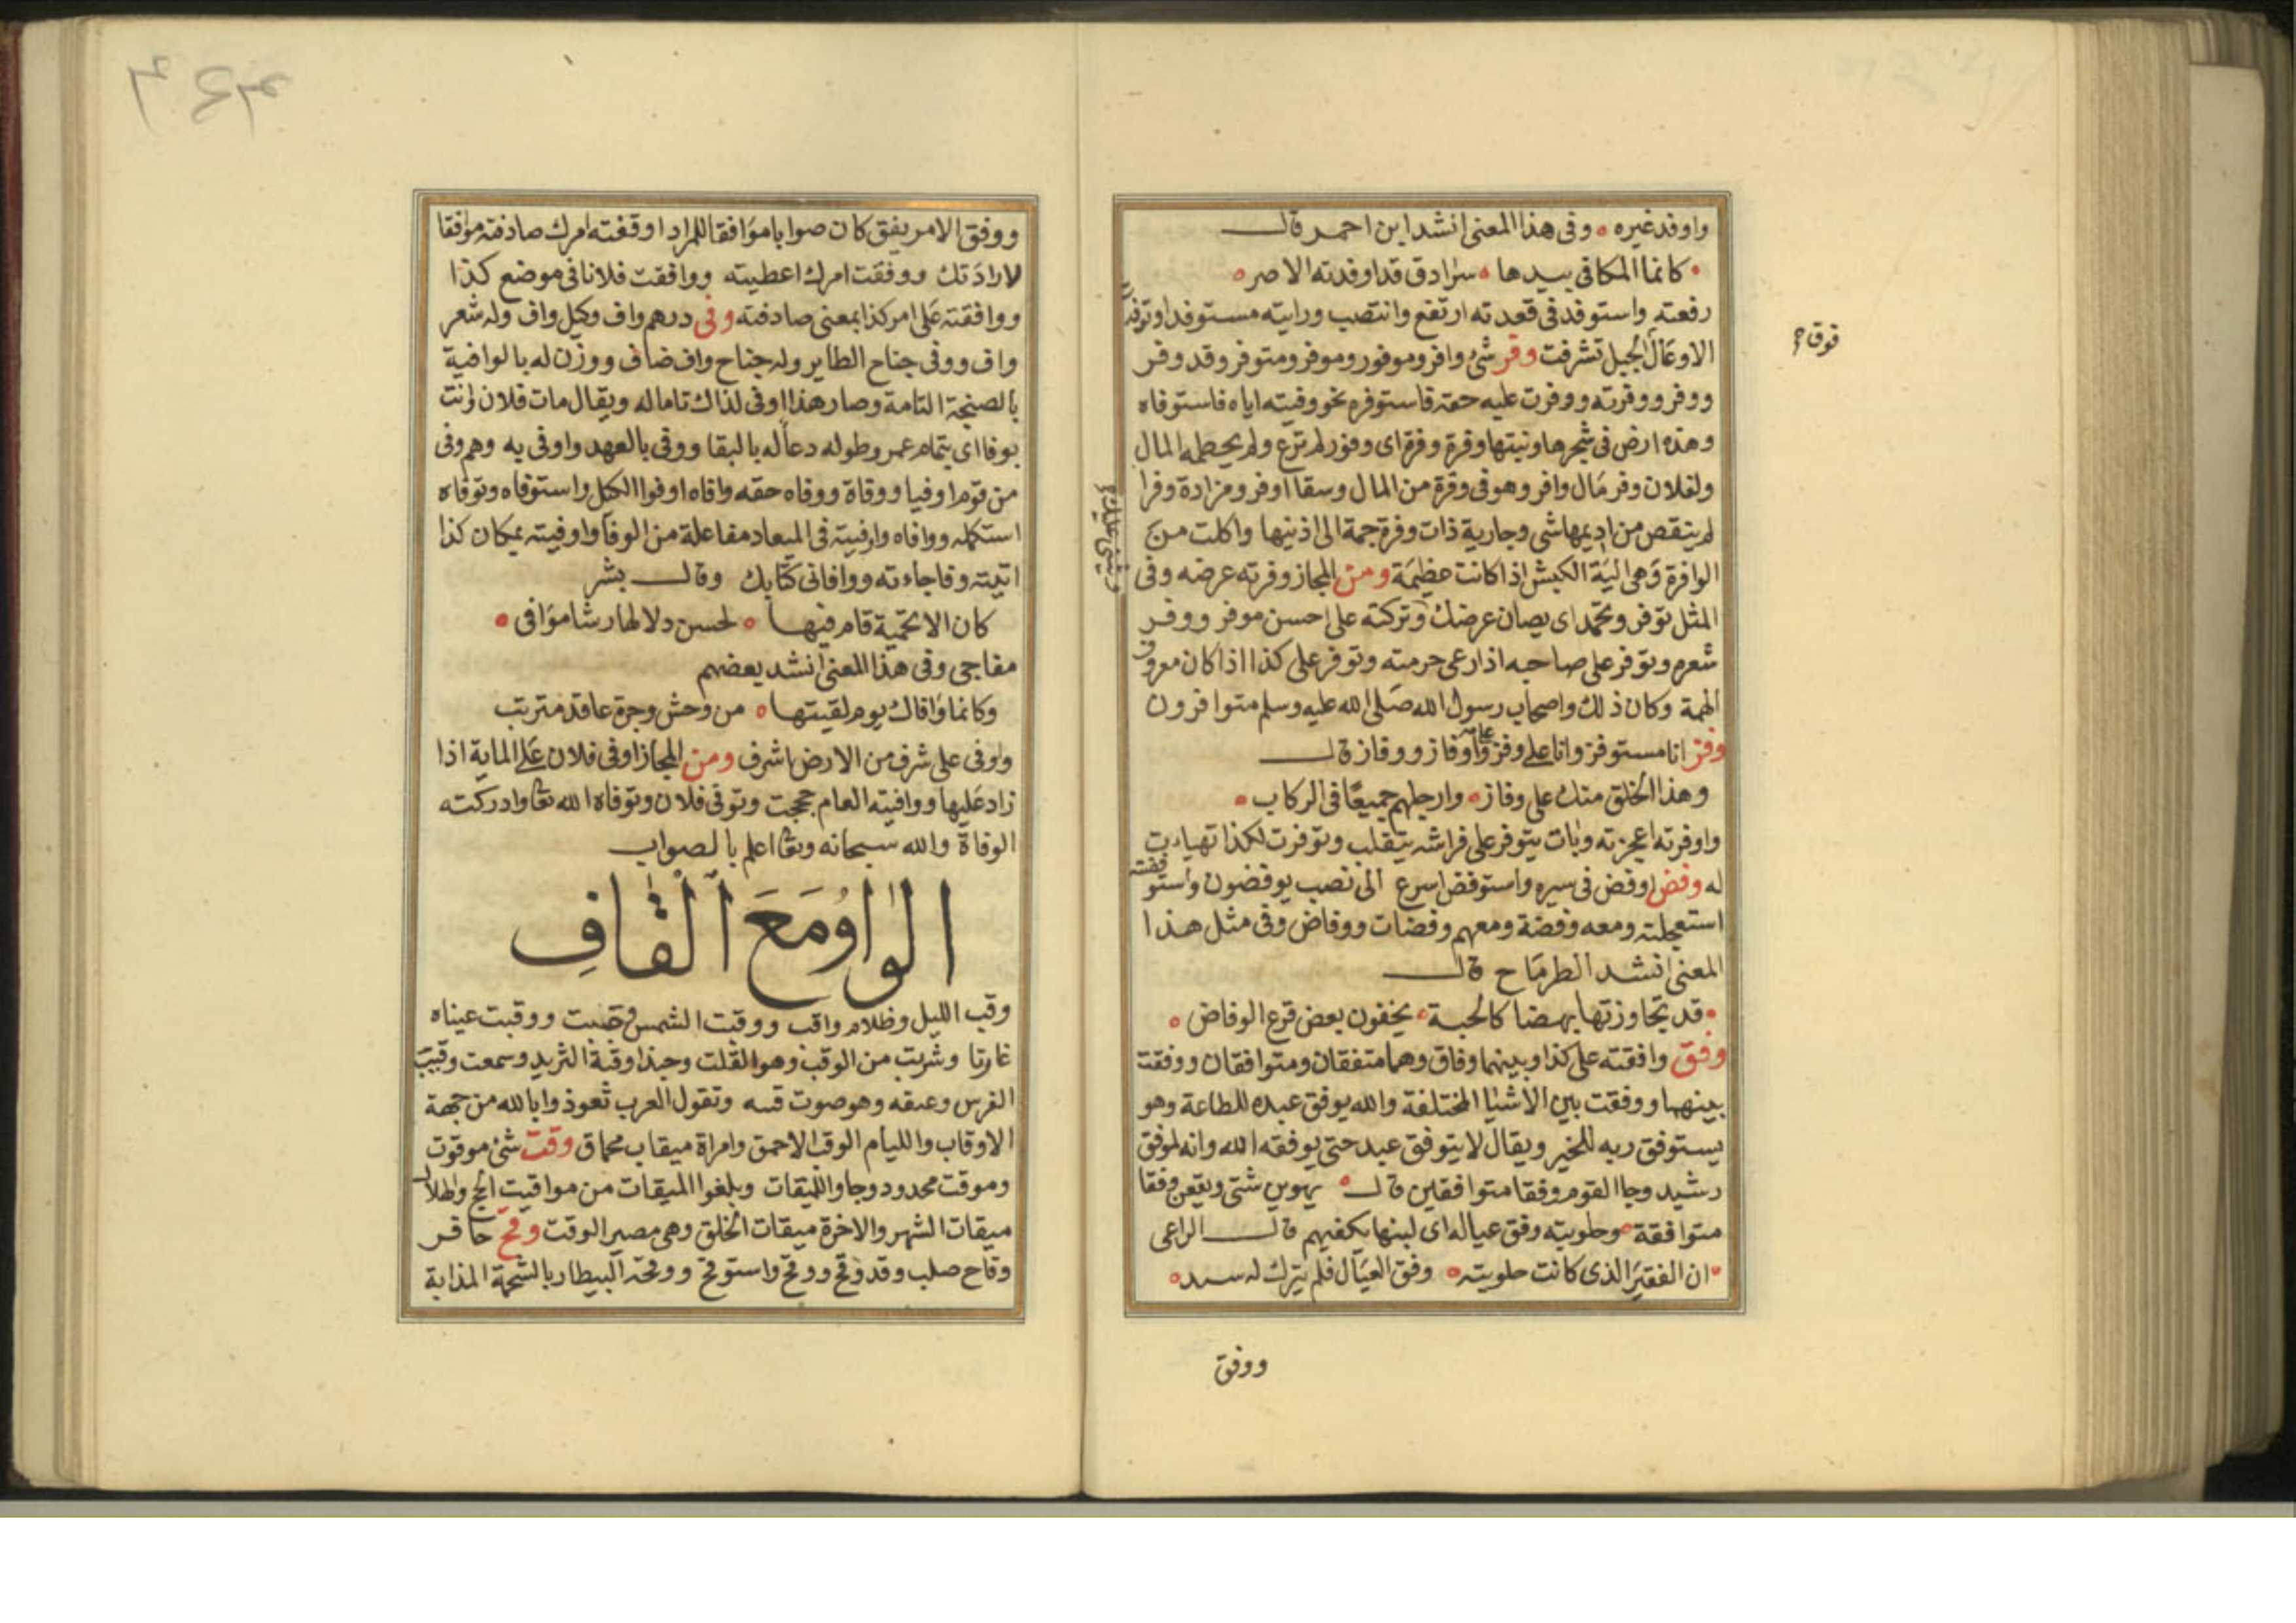 واوفد غيره وفى هذا المعنى انشد ابن احمر قال
كانما المكافى بيدها سرادق قد اوفدته الاصر
رفعته واستوفد فى قعدته ارتفع وانتصب ورايته مستوفدا وتوفدت
الاوعال الجبل تشرفت وفر شئ وافر وموفور وموفر ومتوفر وقد وفر
فوق
ووفر ووفرته ووفرت عليه حقه فاستوفره نحو وفيته اياه فاستوفاه
وهذه ارض فى شجرها ونبتها وفرة وفرة اى وفور لم ترع ولم يحطمه المال
ولفلان وفر مال وافر وهو فى وفرة من المال وسقا اوفر ومزادة وفرا
لم ينقص من اديمها شى وجارية ذات وفرة جمة الى اذنيها واكلت من
الوافرة وهى الية الكبش اذا كانت عظيمة ومن المجاز وفرته عرضه وفى
المثل توفر وتحمد اى يصان عرضك وتركته على احسن موفر ووفر
شعره وتوفر على صاحبه اذا رعى حرمته وتوفر على كذا اذا كان معروف
الهمة وكان ذلك واصحاب رسول الله صلى الله عليه وسلم متوافرون
وفز انا مستوفز وانا على وفز وأوفاز ووفاز قال
وهذا الخلق منك على وفاز وارجلهم جميعا فى الركاب
واوفزته اعجزته وبات يتوفز على فراشه يتقلب وتوفزت لكذا تهيات
له وفض اوفض فى سيره واستوفض اسرع الى نصب يوفضون واستوفضته
استعجلته ومعه وفضة ومعهم وفضات ووفاض وفى مثل هذا
المعنى انشد الطرماح قال
قد تجاوزتها بهضا كالجبة يخفون بعض قرع الوفاض
وفق وافقته على كذا وبينهما وفاق وهما متفقان ومتوافقان ووفقت
بينهما ووفقت بين الاشيا المختلفة والله يوفق عبده للطاعة وهو
يستوفق ربه للخير ويقال لا يتوفق عبد حتى يوفقه الله وانه لموفق
رشيد وجا القوم وفقا متوافقين قال يهوين شتى ويقعن وفقا
متوافقة وحلوبته وفق عياله اى لبنها يكفيهم قال الراعى
ان الفقير الذى كانت حلوبته وفق العيال فلم يترك له سبد
ووفق
ووفق الامر يفق كان صوابا موافقا للمراد اوفقته امرك صادفته موافقا
لارادتك ووفقت امرك اعطيته ووافقت فلانا فى موضع كذا
ووافقته على امر كذا بمعنى صادفته وفى درهم واف وكيل واف وله شعر
واف ووفى جناح الطاير وله جناح واف ضاف ووزن له بالوافية
بالصنجة التامة وصار هذا اوفى لذاك تاما له ويقال مات فلان وانت
بوفا اى بتمام عمر وطوله دعا له بالبقا ووفى بالعهد واوفى به وهو وفى
من قوم اوفيا ووفاة ووفاه حقه وافاه اوفوا الكيل واستوفاه وتوفاه
استكمله ووافاه وافيته فى الميعاد مفاعلة من الوفا واوفيته بمكان كذا
اتيته وفاجاءته ووافانى كتابك وقال بشر
كان الاتحمية قام فيها لحسن دلالها رشا موافى
مفاجى وفى هذا المعنى انشد بعضهم
وكانما وافاك يوم لقيتها من وحش وجرة عاقد متربب
واوفى على شرف من الارض اشرف ومن المجاز اوفى فلان على الماية اذا
زاد عليها ووافيته العام حججت وتوفى فلان وتوفاه الله تعا وادركته
الوفاة والله سبحانه وتعا اعلم بالصواب
الواو مع القاف
وقب الليل وظلام واقب ووقبت الشمس وجبت ووقبت عيناه
غارتا وشربت من الوقب وهو القلت وحبذا وقبة الثريد وسمعت وقيب
الفرس وعيقه وهو صوت قنبه وتقول العرب تعوذوا بالله من جهة
الاوقاب والليام الوقب الاحمق وامراة ميقاب محماق وقت شئ موقوت
وموقت محدود وجاوا للميقات وبلغوا الميقات من مواقيت الحج والهلال
ميقات الشهر والاخرة ميقات الخلق وهى مصير الوقت وقح حافر
وقاح صلب وقد وقح ووقح واستوقح ووقحه البيطار بالشحمة المذابة